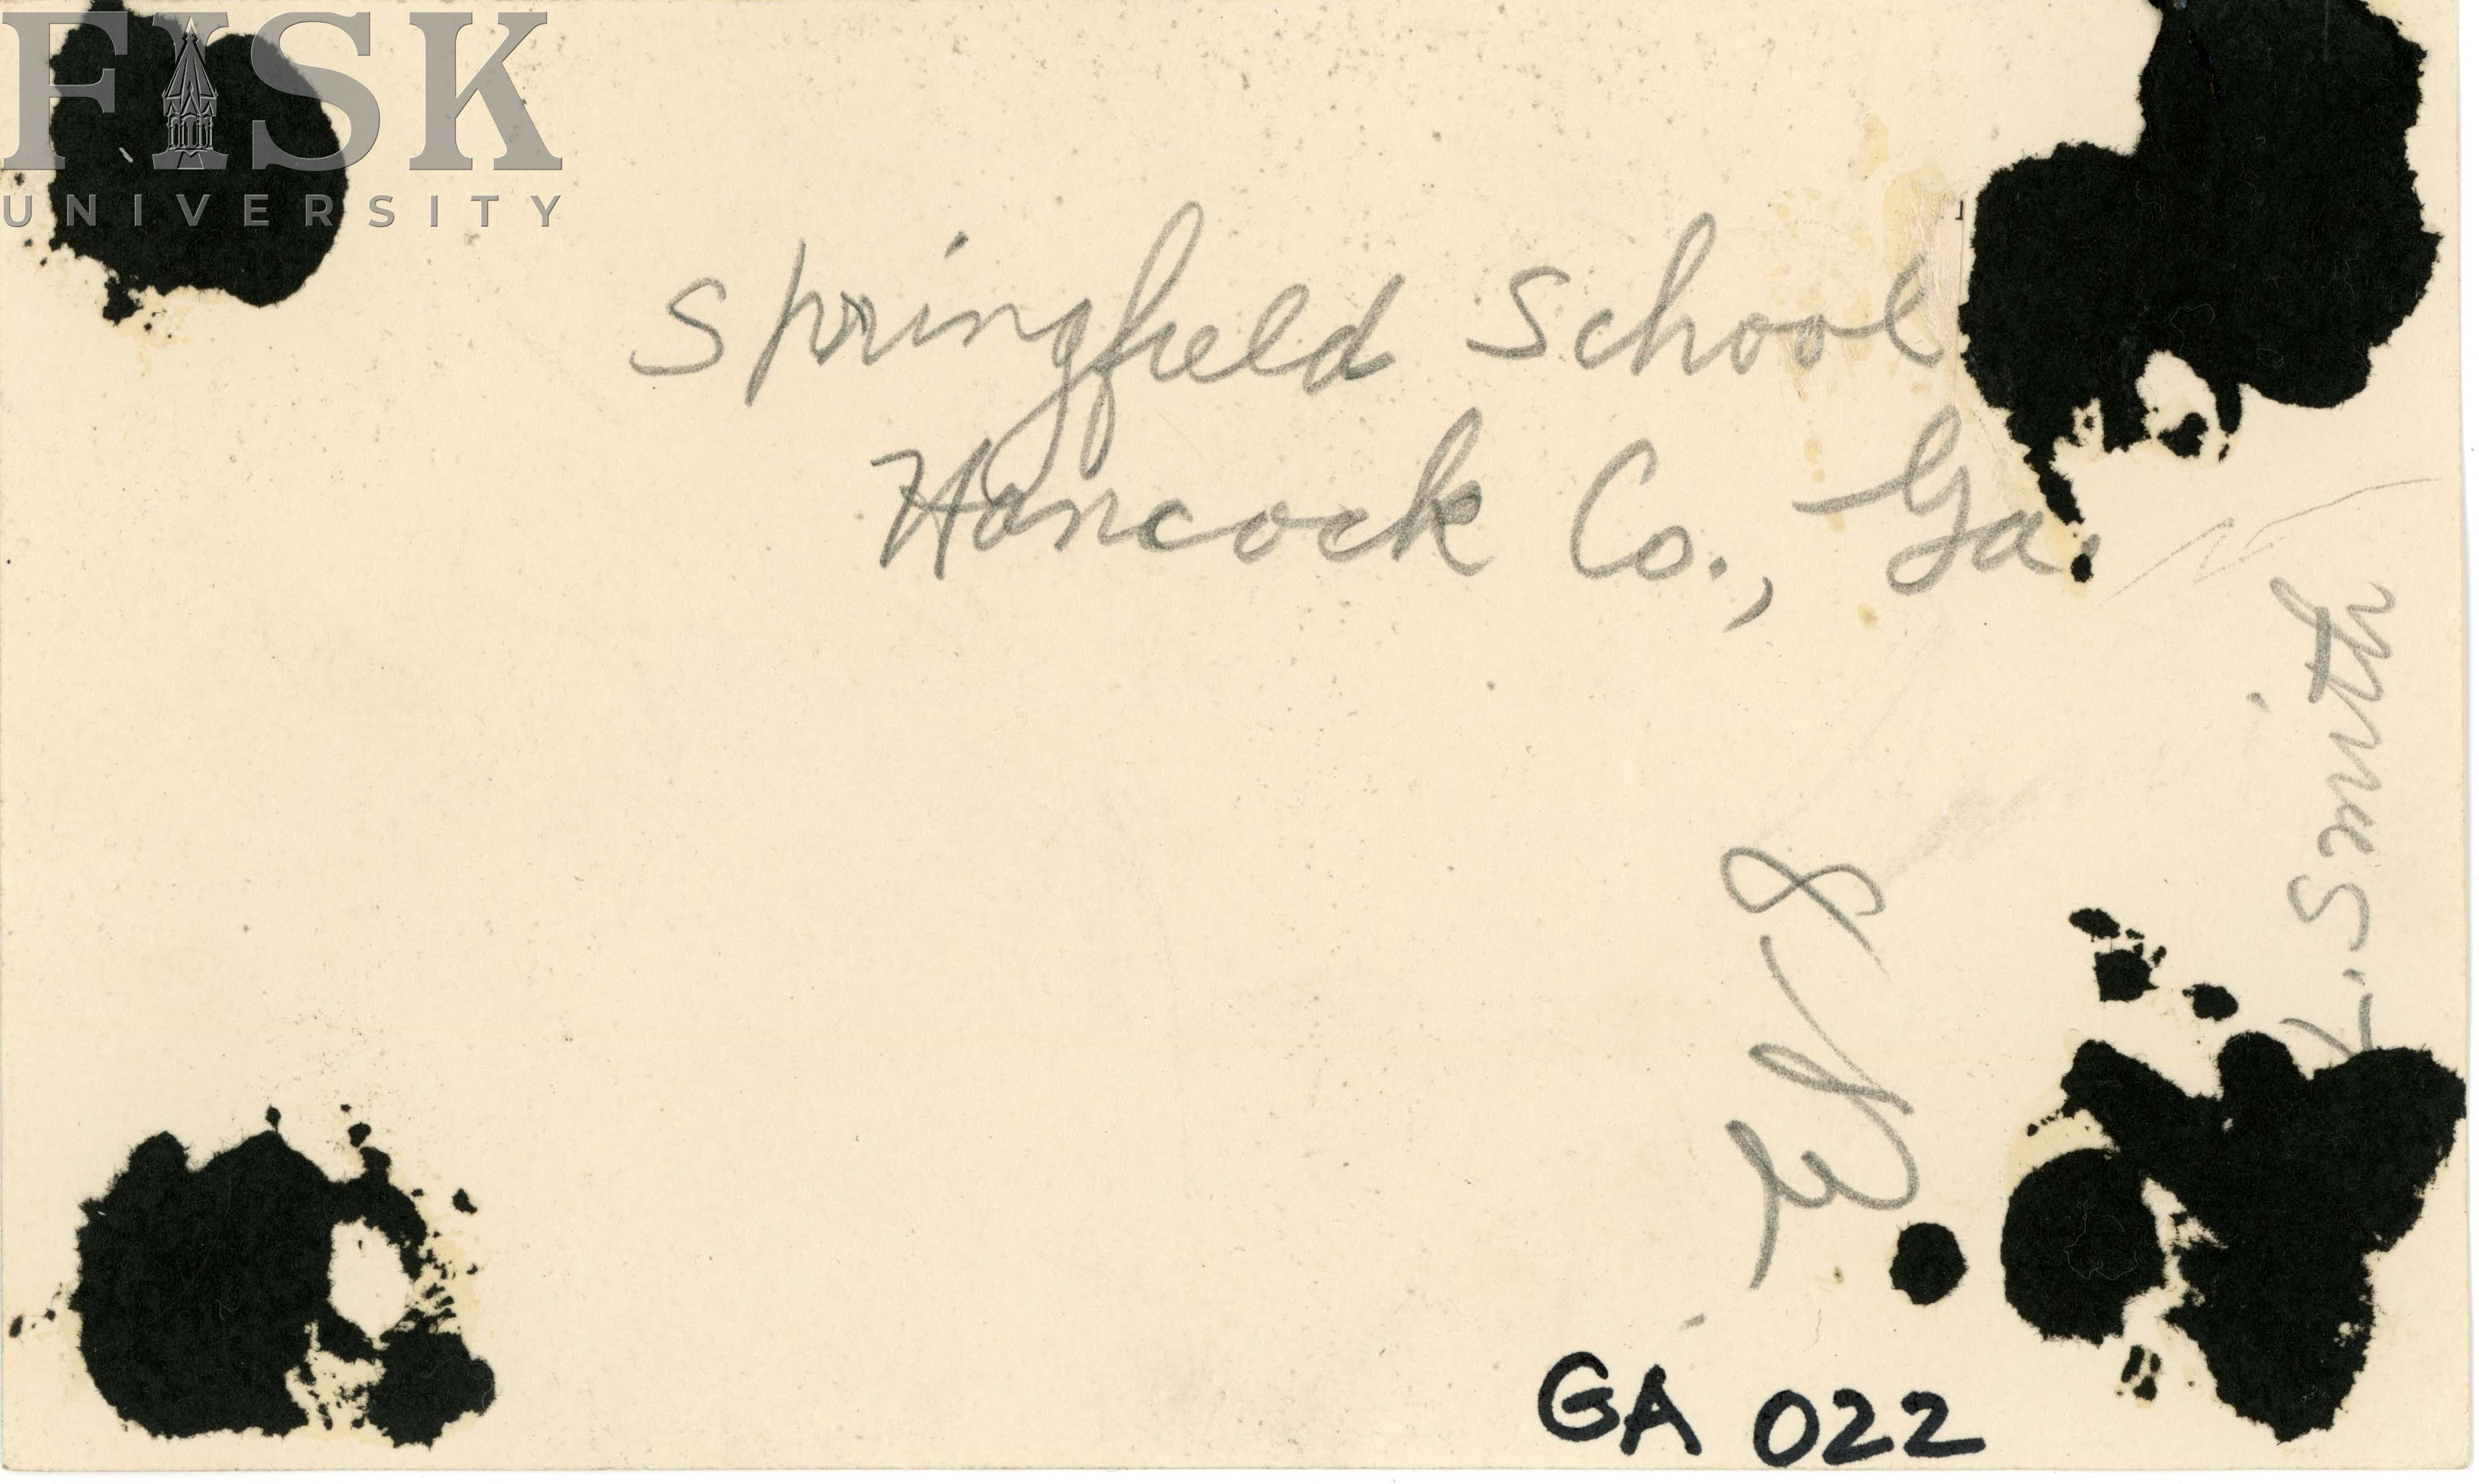 FISK
UNIVERSITY
Springfield School
Hancock Co., Ga.
. Smith
GA 022